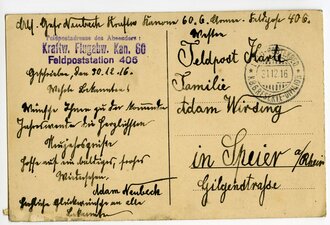 Abs. Gefr Neubeck Kraftw Kanone 60. 6. Armee. Feldpost 406.
Westen
Postadresse des Absenders:
Kraftw. Flugabw. Kan. 60
Feldpoststation 406
Geschrieben, den 30.12.16.
Werte Bekannten!
Wünsche Ihnen zu der kommenden
Jahreswende die herzlichsten
Neujahrsgrüße
hoffe auf ein baldiges, frohes
Wiedersehen.
Adam Neubeck
herzliche Glückwünsche an alle
Bekannten
Feldpost Karte
31.12.16
Familie
Adam Wirsing
in Speier a/Rhein
Gilgenstraße